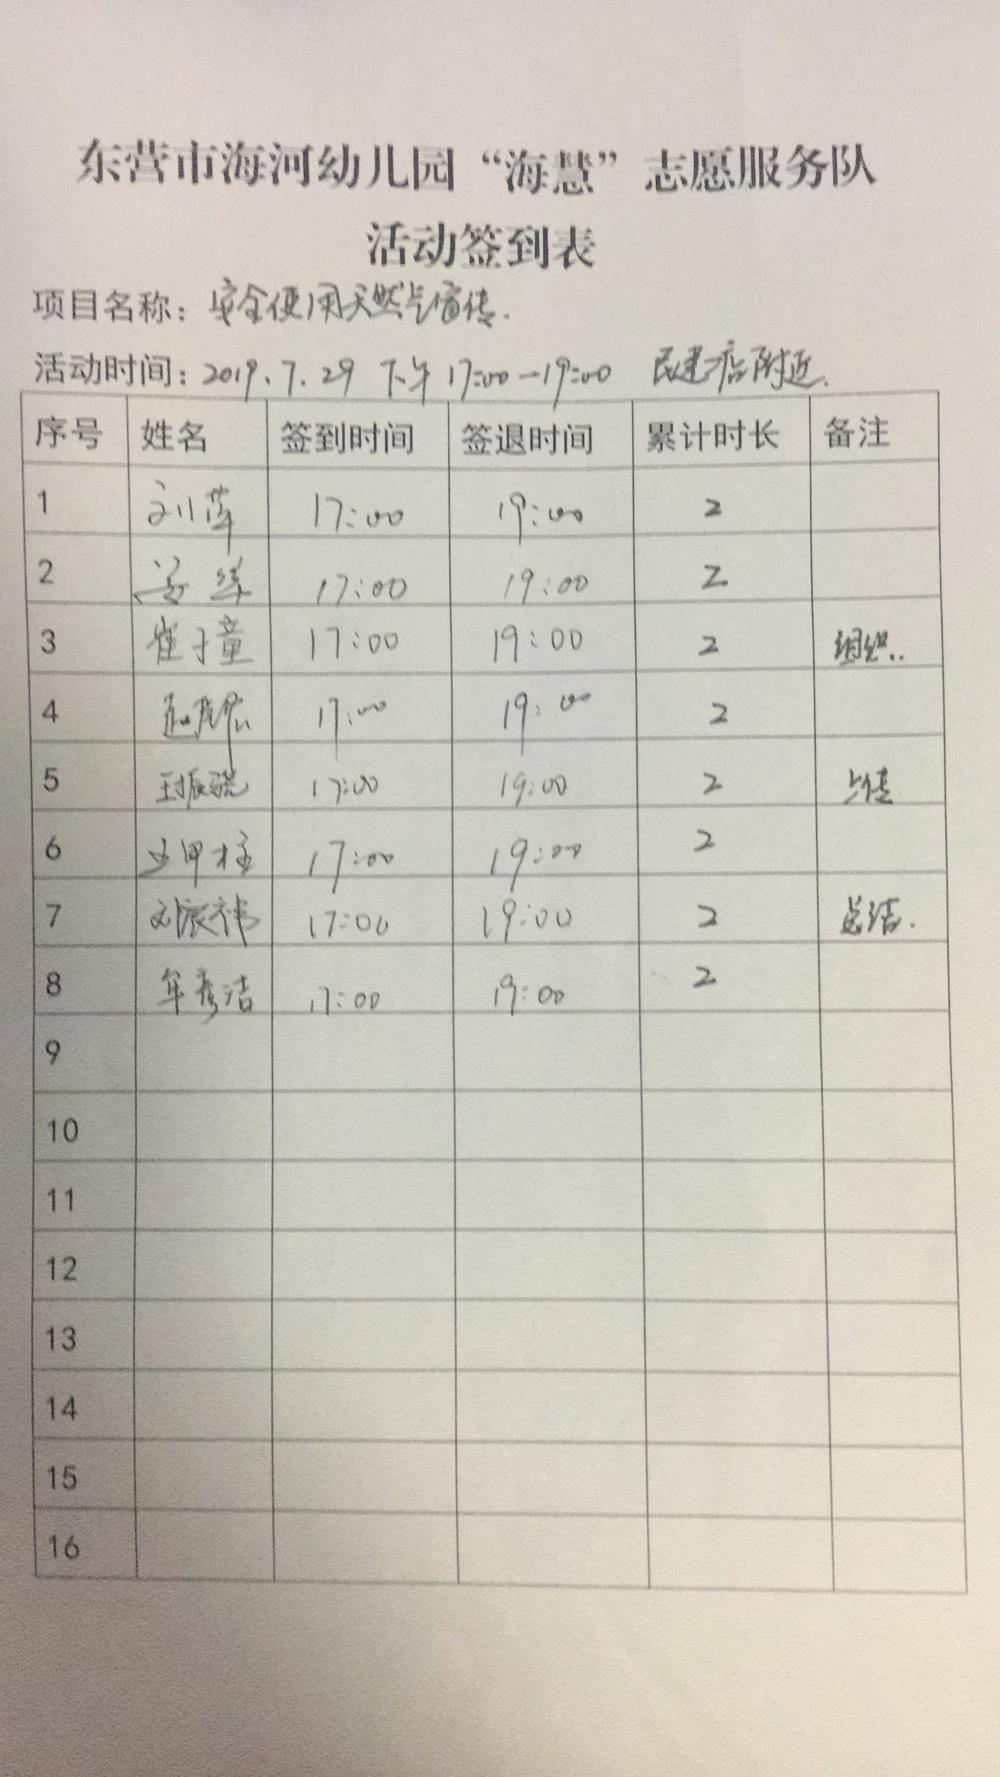 东营市海河幼儿园“海慧”志愿服务队
活动签到表
项目名称：安全使用天然气宣传.
活动时间：2019.7.29 下午 17:00—19:00 民建店附近.
序号 姓名 签到时间 签退时间 累计时长 备注
1 刘萍 17:00 19:00 2
2 17:00 19:00 2
3 崔子童 17:00 19:00 2 组织..
4 17:00 19:00 2
5 17:00 19:00 2 上传
6 17:00 19:00 2
7 17:00 19:00 2 总结.
8 年秀洁 17:00 19:00 2
9
10
11
12
13
14
15
16